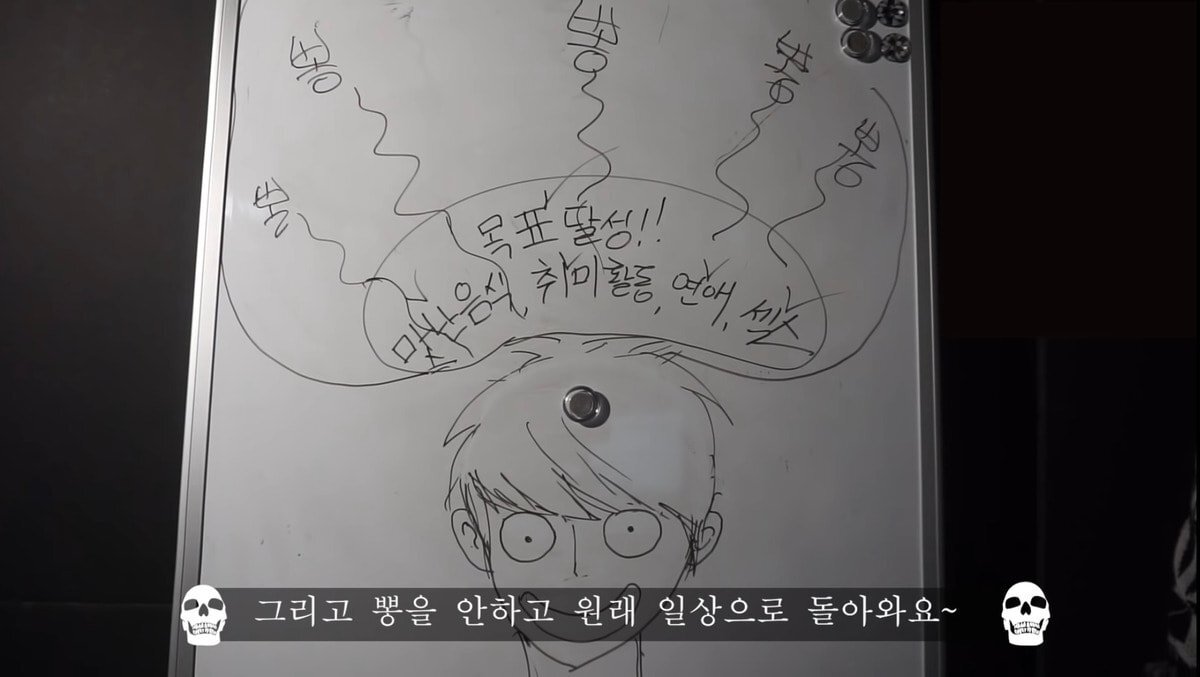 뽕
뽕
뽕
뽕
뽕
목표 딸성!!
맛난음식, 취미활동, 연애, 섹X
그리고 뽕을 안하고 원래 일상으로 돌아와요~